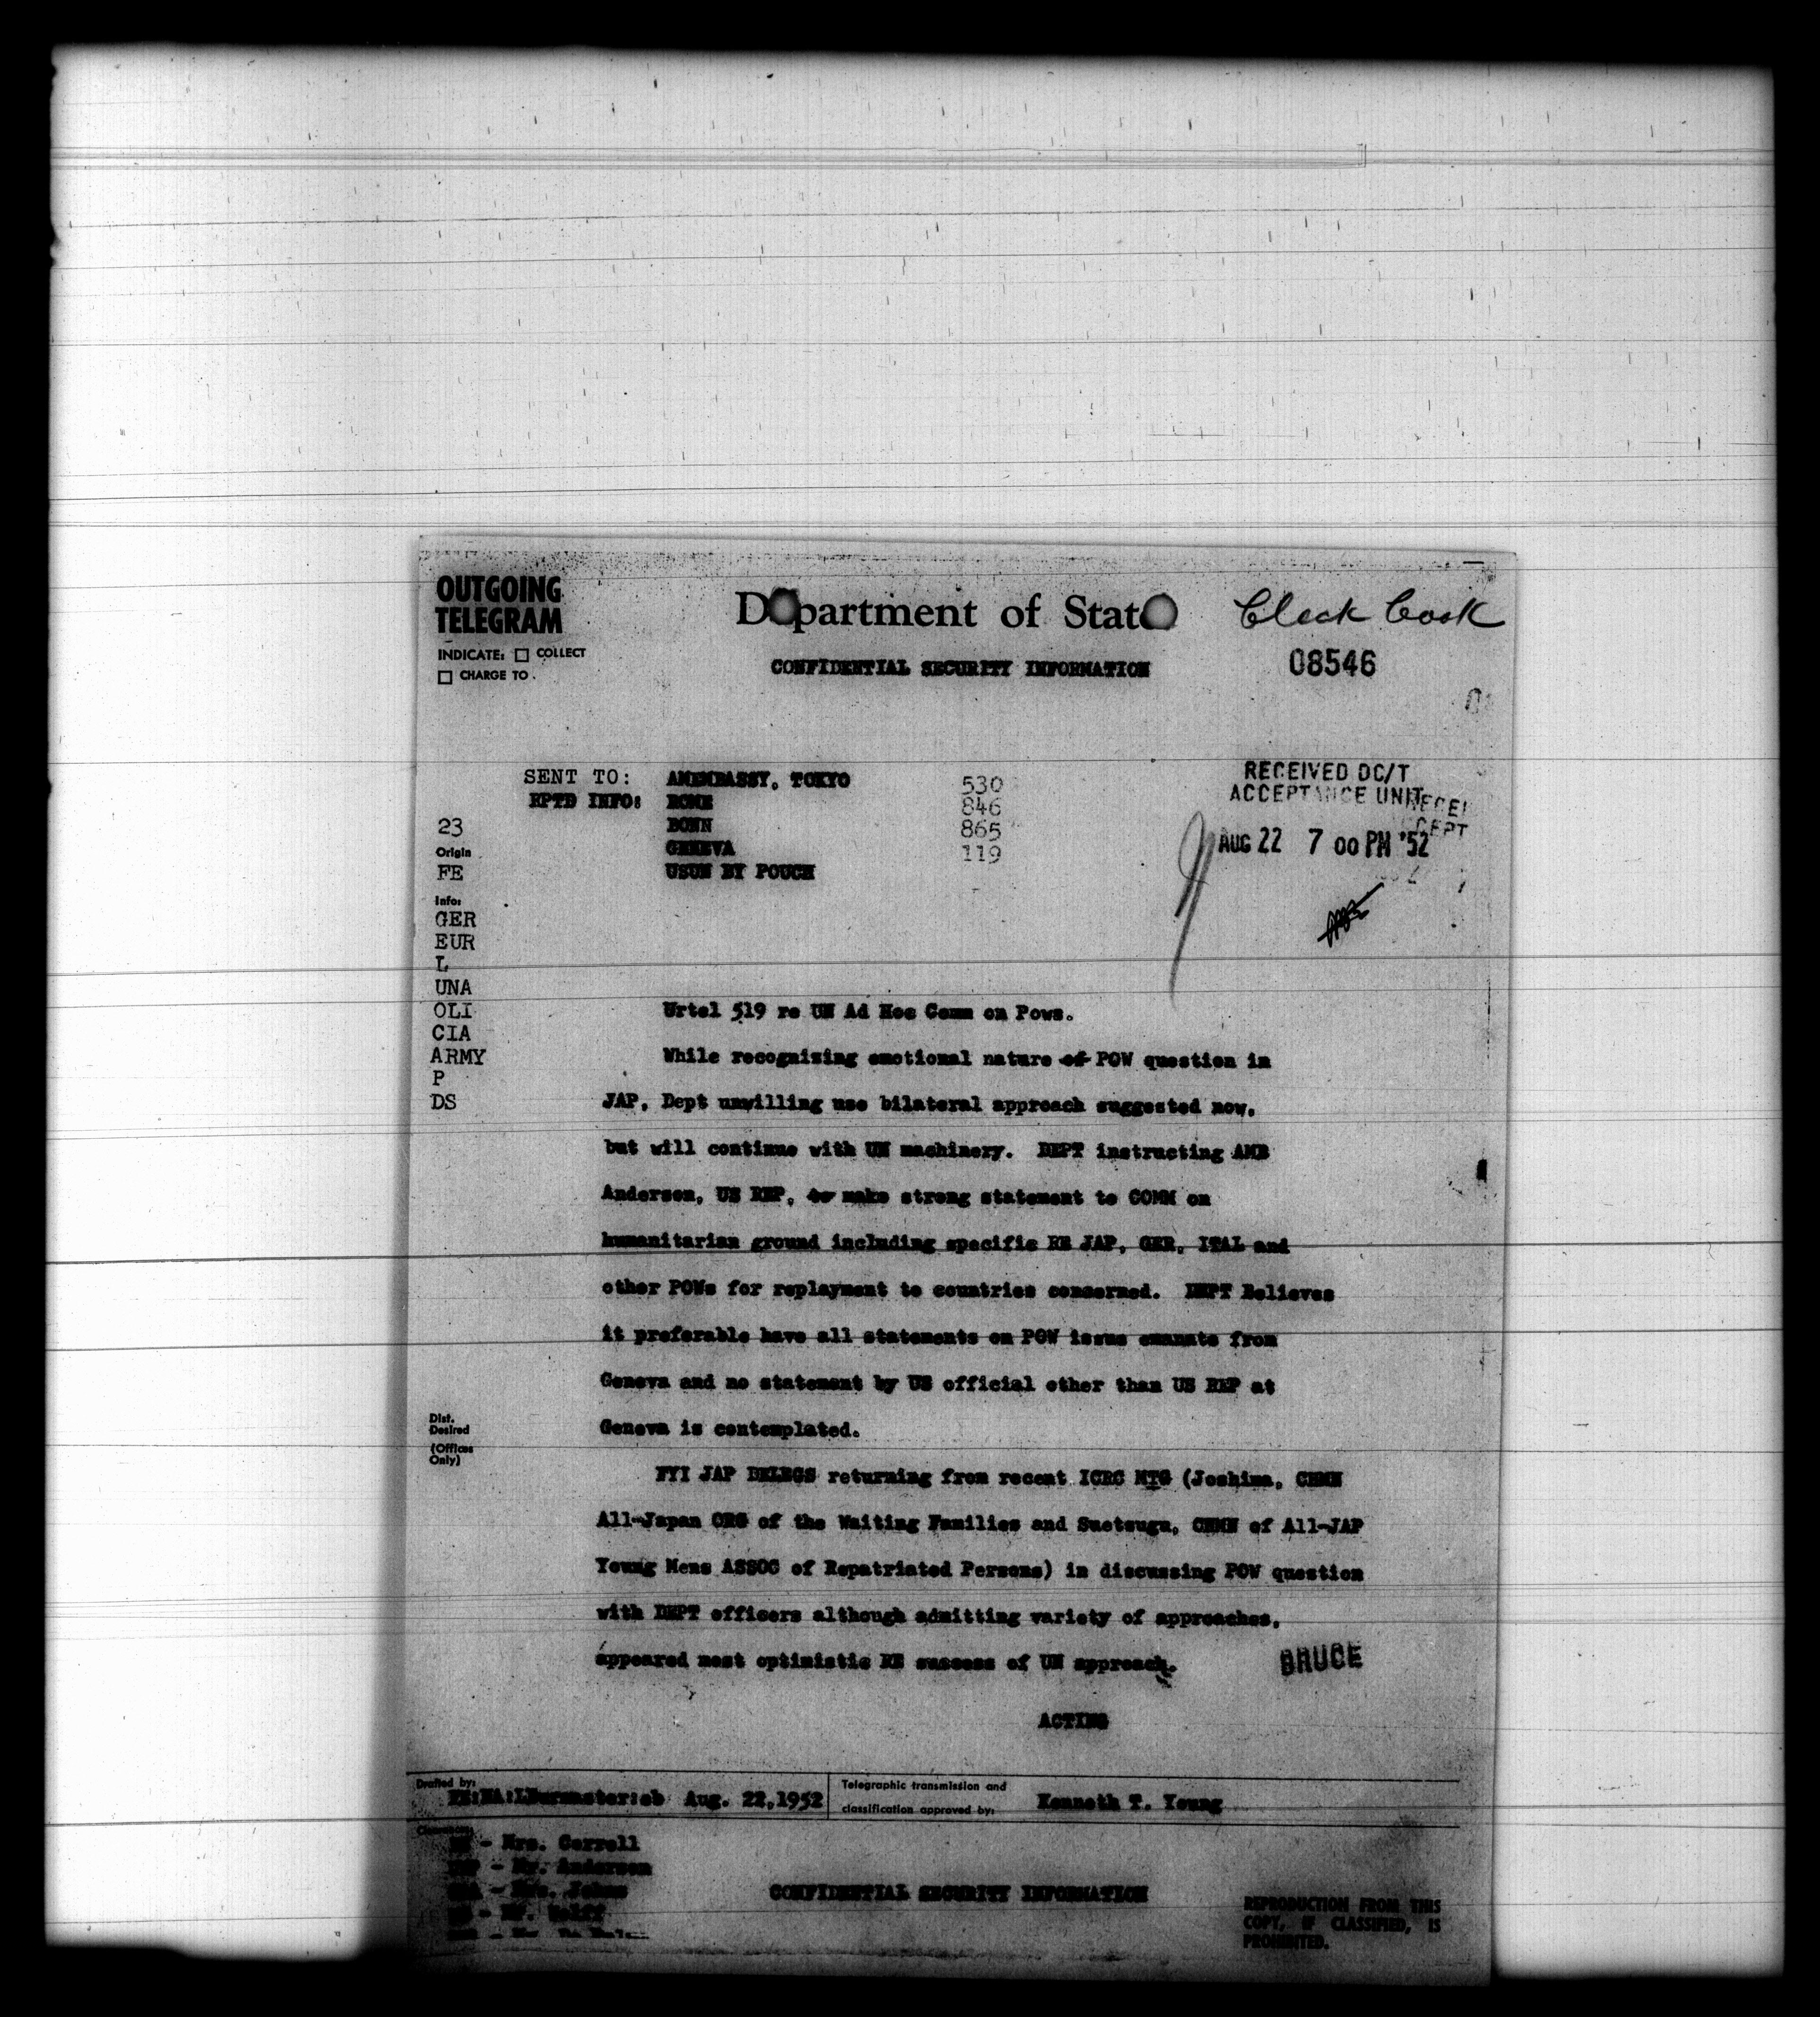 OUTGOING
TELEGRAM
INDICATE: ☐ COLLECT
☐ CHARGE TO
Department of State
CONFIDENTIAL SECURITY INFORMATION
Check Cook
08546
SENT TO: AMEMBASSY, TOKYO 530
RPTD INFO: ROME 846
BONN 865
GENEVA 119
USUN BY POUCH
RECEIVED DC/T
ACCEPTANCE UNIT
AUG 22 7 00 PM '52
23
Origin
FE
Info:
GER
EUR
L
UNA
OLI
CIA
ARMY
P
DS
Urtel 519 re UN Ad Hoc Comm on Pows.
While recognizing emotional nature of POW question in
JAP, Dept unwilling use bilateral approach suggested now,
but will continue with UN machinery. DEPT instructing AMB
Anderson, US REP, to make strong statement to COMM on
humanitarian ground including specific RE JAP, GER, ITAL and
other POWs for replayment to countries concerned. DEPT Believes
it preferable have all statements on POW issue emanate from
Geneva and no statement by US official other than US REP at
Geneva is contemplated.
Dist.
Desired
(Offices
Only)
FYI JAP DELEGS returning from recent ICRC MTG (Joshima, CHMN
All-Japan ORG of the Waiting Families and Suetsugu, CHMN of All-JAP
Young Mens ASSOC of Repatriated Persons) in discussing POW question
with DEPT officers although admitting variety of approaches,
appeared most optimistic RE success of UN approach.
BRUCE
ACTING
Drafted by:
Aug. 22,1952
Telegraphic transmission and
classification approved by: Kenneth T. Young
- Mrs. Correll
- Mr. Anderson
CONFIDENTIAL SECURITY INFORMATION
REPRODUCTION FROM THIS
COPY, IF CLASSIFIED, IS
PROHIBITED.